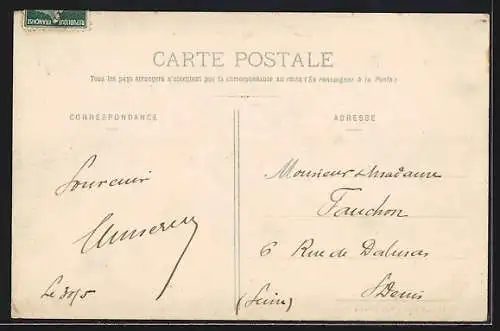 CARTE POSTALE
Tous les pays étrangers n'acceptent pas la correspondance au recto (Se renseigner à la Poste)
CORRESPONDANCE
ADRESSE
Souvenir
Le 30/5
Monsieur & Madame
Fauchon
6 Rue de
St Denis
(Seine)